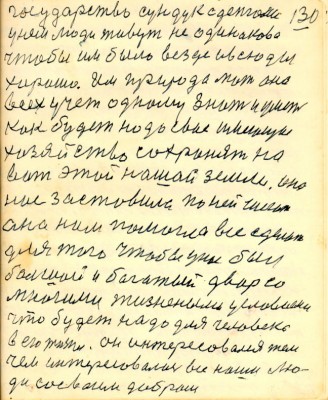 государство сундук с деньгами 130
у ней люди живут не одинаково
чтобы им было везде и всюды
хорошо. Им природа мот она
всех учет одному знат и уметь
как будет надо свае
хозяйство сохранят на
вот этой нашай земле, она
нас застовила по ней
она нам помогла все сделат
для того чтобы у нас был
большой и багатый двар со
многими жизнеными условиями
что будет надо для человека
в его жизни. он интересовался тем
чем интересовалас все наши лю-
ди, со сваим добром